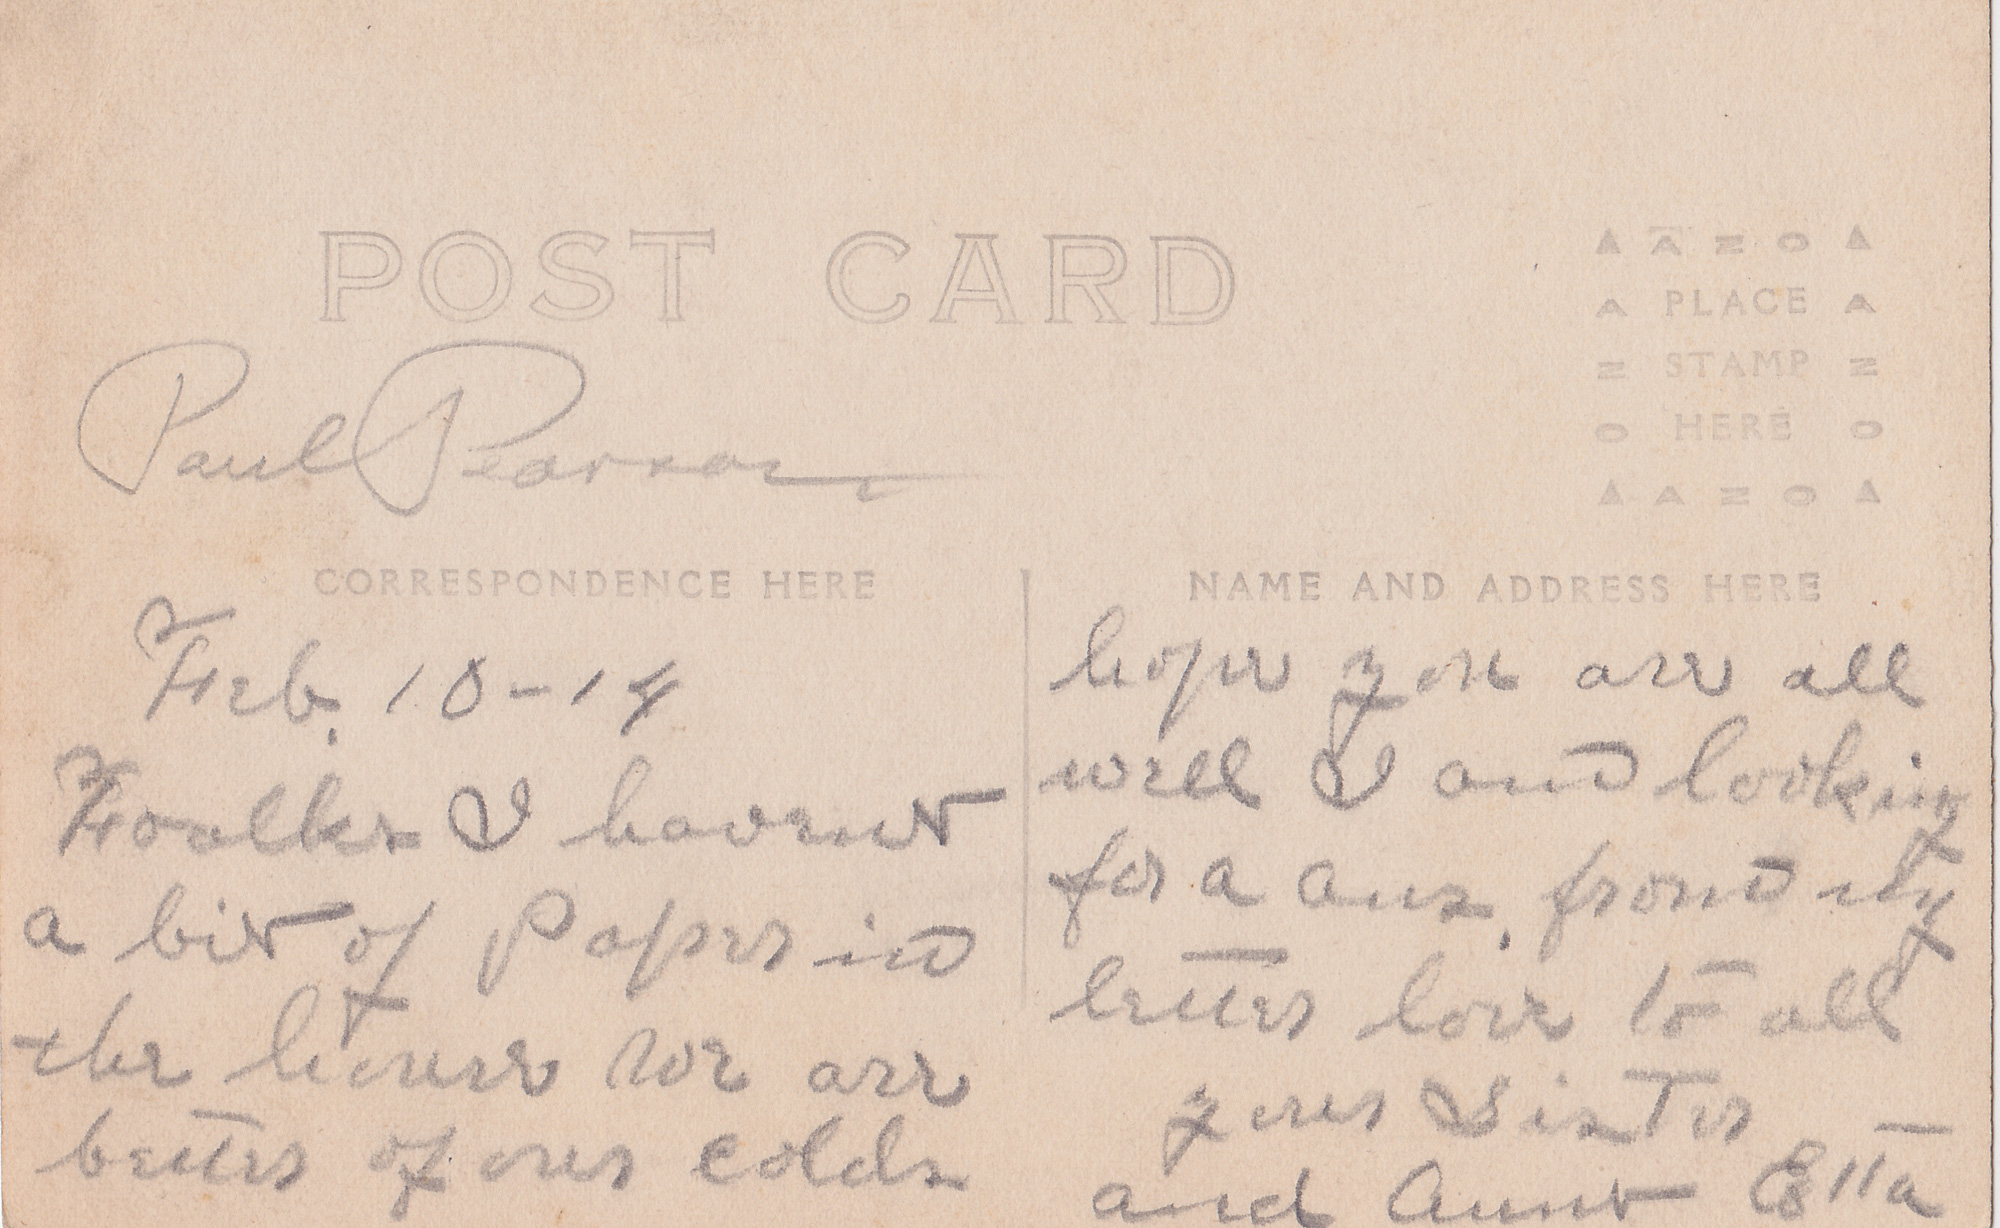 POST CARD
▲ A Z O ▲
A PLACE A
Z STAMP Z
O HERE O
▲ A Z O ▲
Paul Pearson
CORRESPONDENCE HERE
Feb. 10-14
Foalks I havent
a bit of Paper in
the house we are
better of our colds
NAME AND ADDRESS HERE
hope you are all
well I am looking
for a ans. from my
letter love to all
your Sister
and Aunt Etta